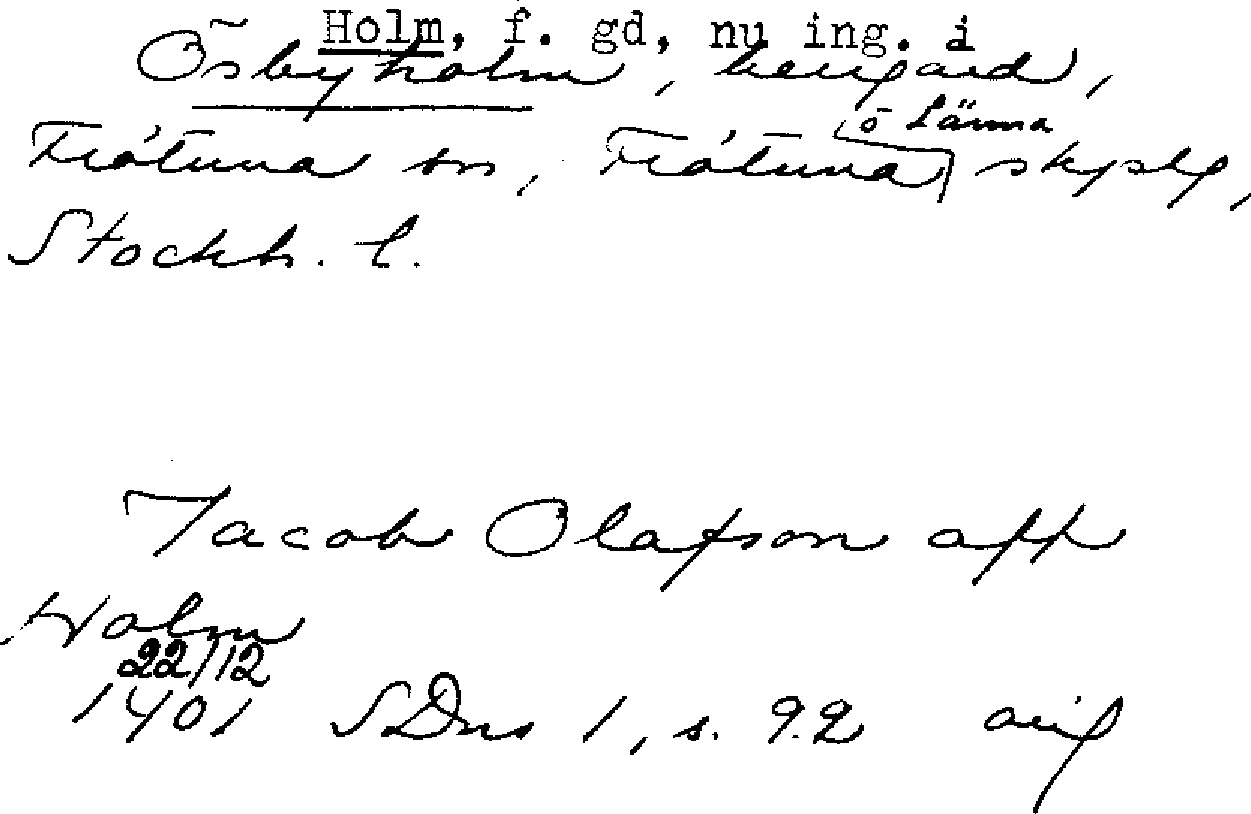 Holm, f. gd, nu ing. i
Ösbyholm, herrgård,
Frötuna sn, Frötuna
o Länna
skpslg,
Stockh. l.
Jacob Olafson aff
Holm
22/12
1401 SDns 1, s. 92 orig